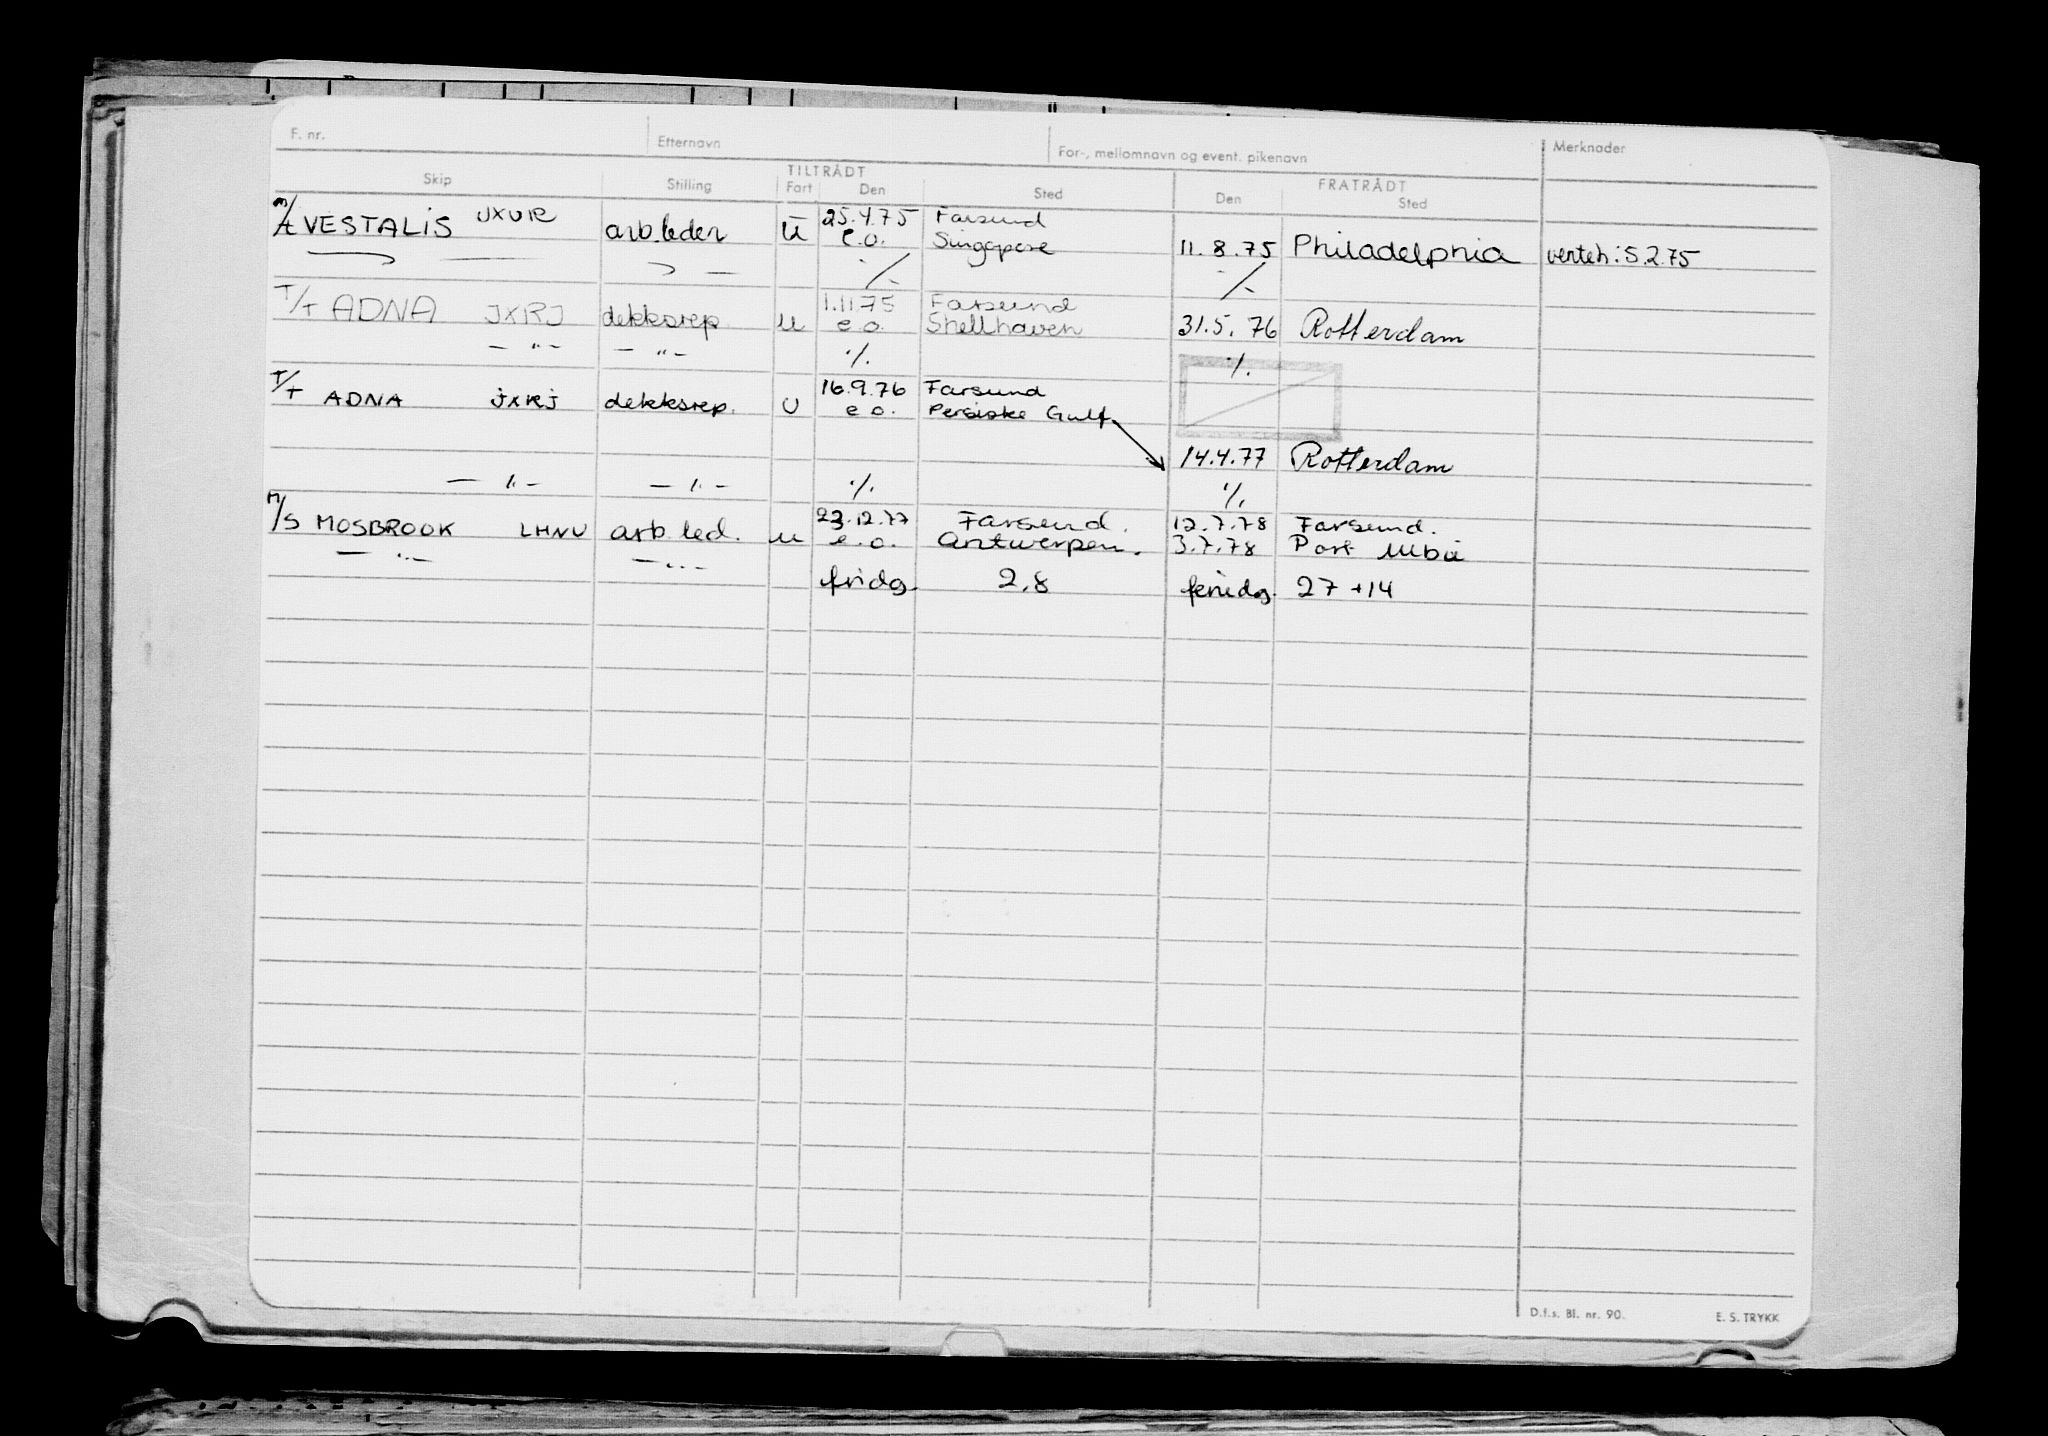 F. nr. Efternavn For-, mellomnavn og event. pikenavn Merknader
TILTRÅDT FRATRÅDT
Skip Stilling Fart Den Sted Den Sted
M/T VESTALIS JXUR arb.leder U 25.4.75 Farsund
e.o. Singapore 11.8.75 Philadelphia verteh: 5.2.75
— " — ./. ./.
T/T ADNA JXRJ dekksrep. U 1.11.75 Farsund
e.o. Shellhaven 31.5.76 Rotterdam
— " — — " — ./. ./.
T/T ADNA JXRJ dekksrep. U 16.9.76 Farsund
e.o. Persiske Gulf
14.4.77 Rotterdam
— " — — " — ./. ./.
M/S MOSBROOK LHNU arb.led. U 23.12.77 Farsund. 12.7.78 Farsund.
— " — — " — e.o. Antwerpen. 3.7.78 Port
fridg. 2.8 feridg. 27 + 14
D.f.s. Bl. nr. 90. E. S. TRYKK